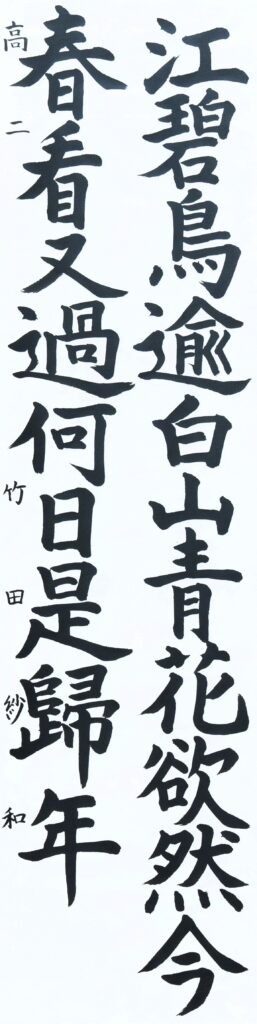 江碧鳥逾白山青花欲然今
春看又過何日是歸年
高二 竹田紗和